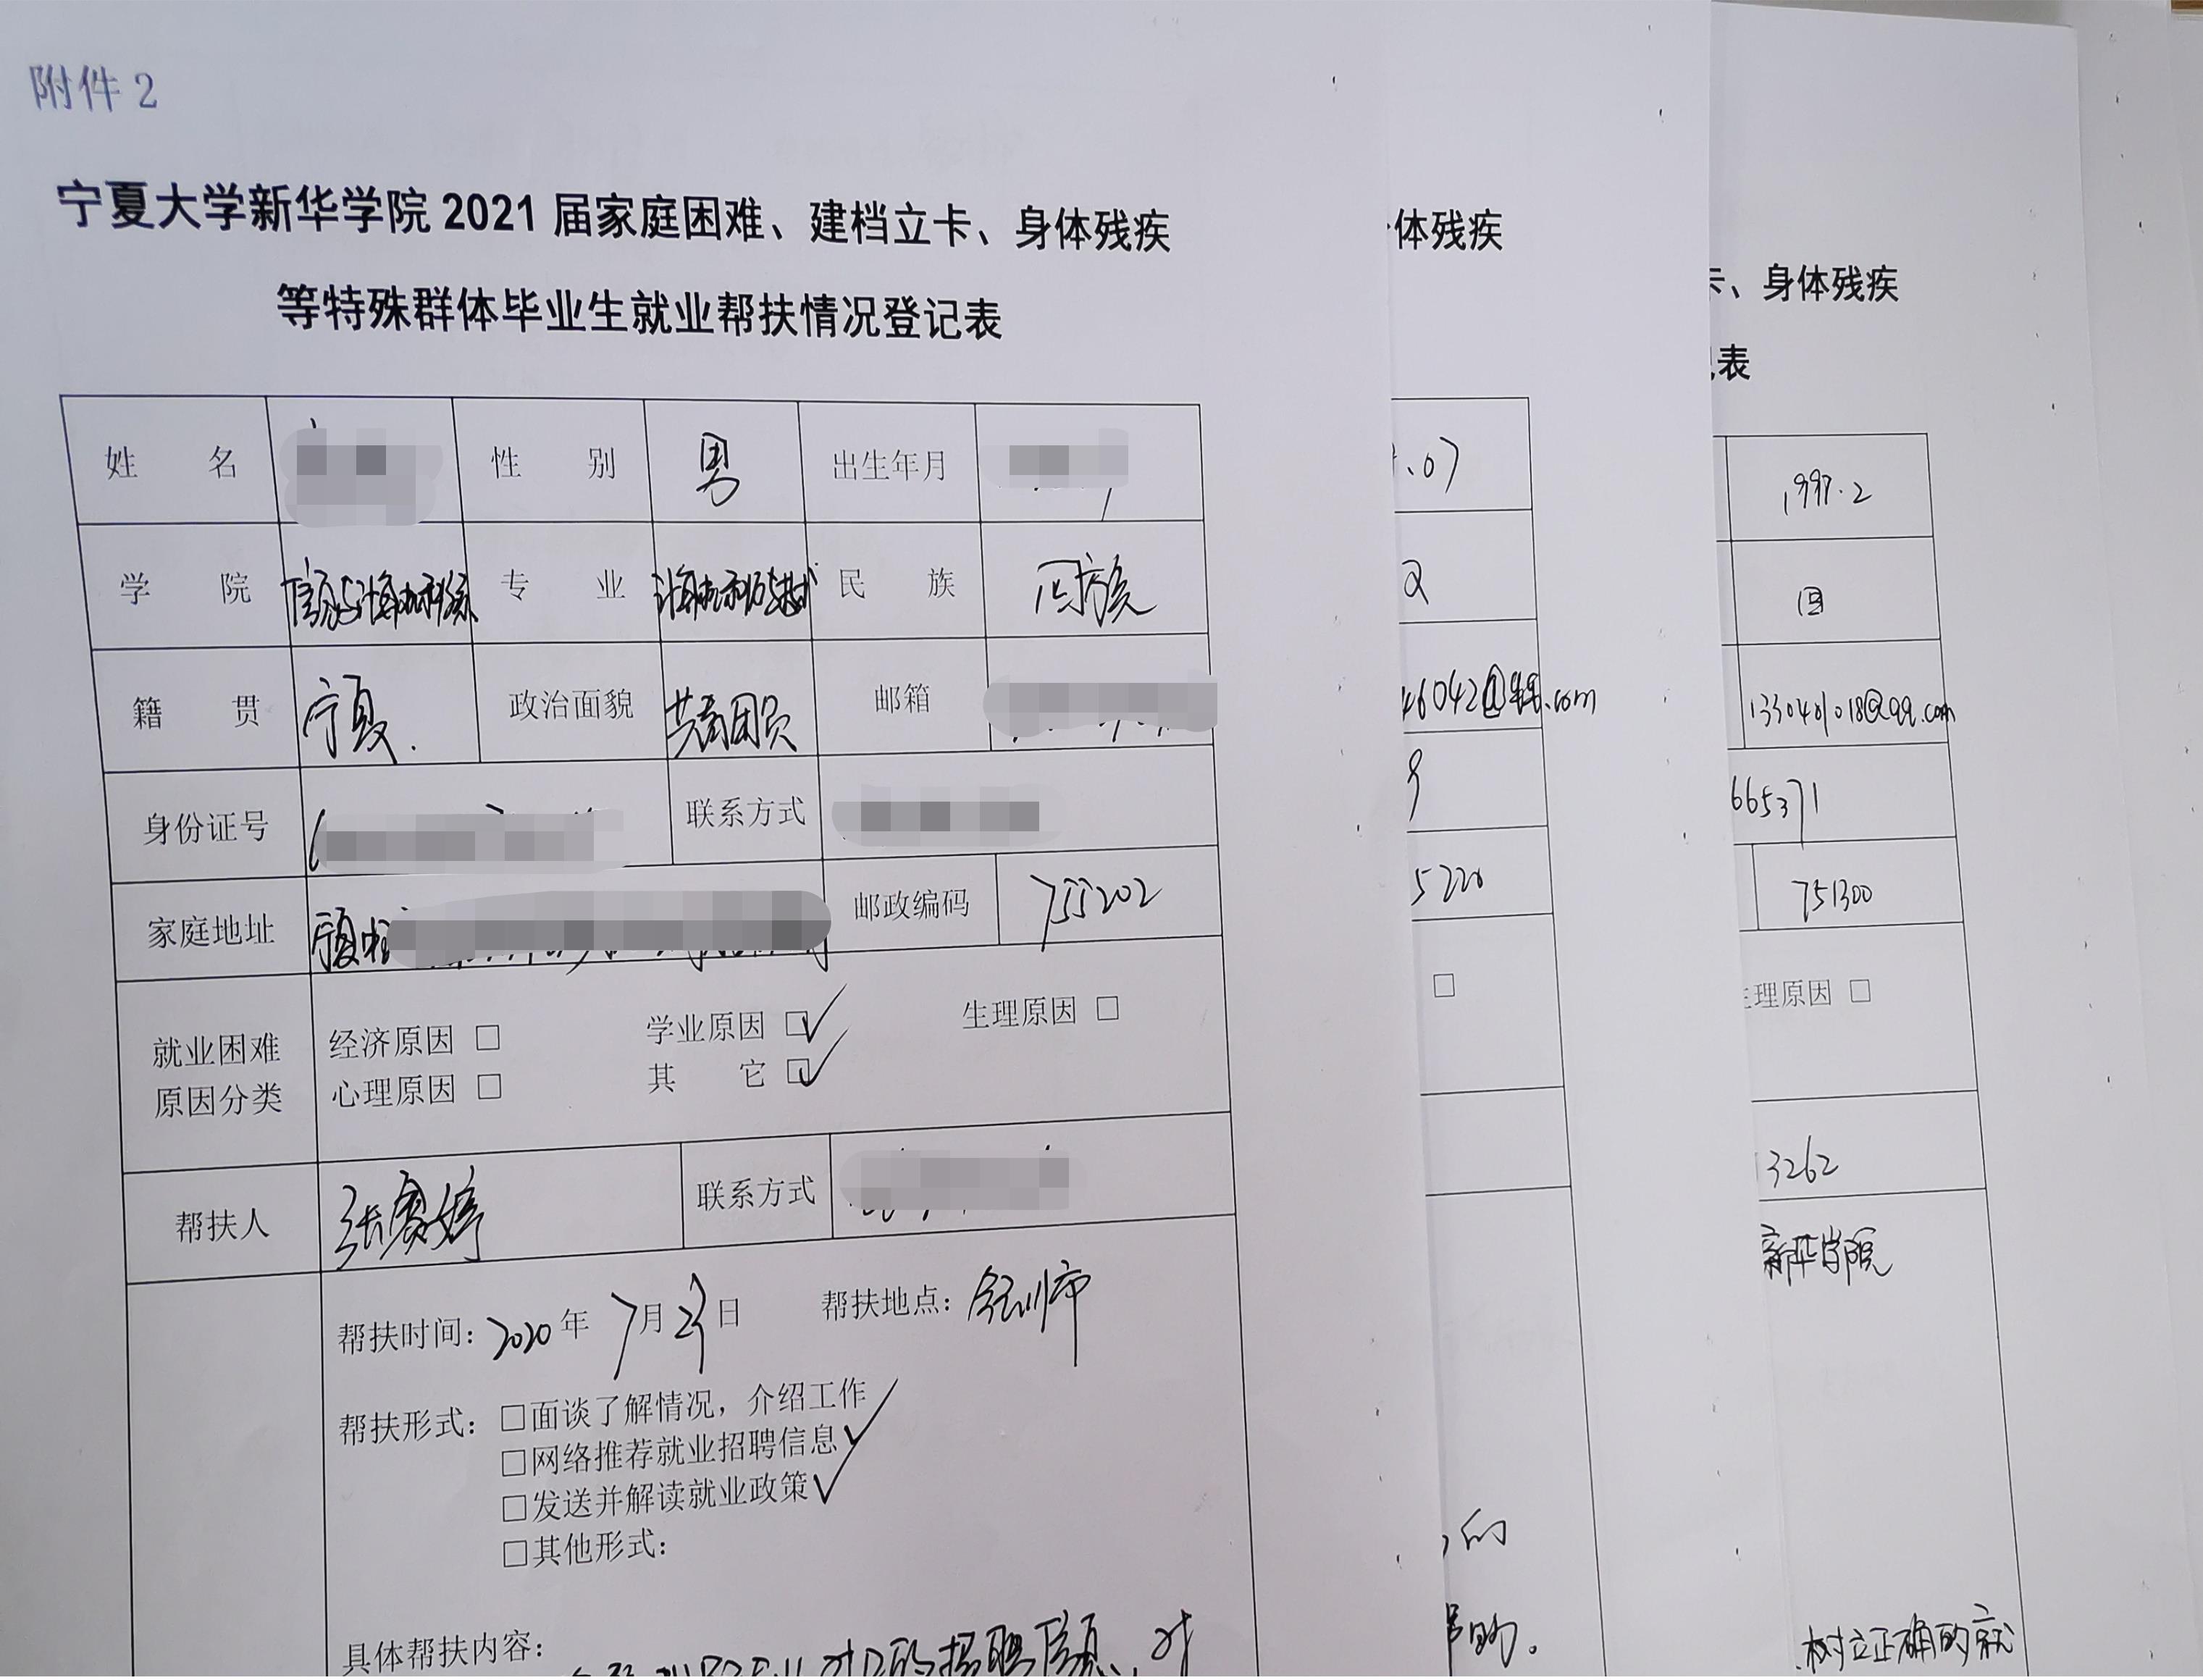 附件2
宁夏大学新华学院 2021 届家庭困难、建档立卡、身体残疾
等特殊群体毕业生就业帮扶情况登记表
姓 名 性 别 男 出生年月
学 院 信息与计算机科学系 专 业 计算机科学与技术 民 族 回族
籍 贯 宁夏. 政治面貌 共青团员 邮箱
身份证号 联系方式
家庭地址 宁夏中 邮政编码 755202
就业困难
原因分类
经济原因 □ 学业原因 □✓ 生理原因 □
心理原因 □ 其 它 □✓
帮扶人 张赛婷 联系方式
帮扶时间: 2020 年 7月 23日 帮扶地点: 银川市
帮扶形式: □面谈了解情况,介绍工作
□网络推荐就业招聘信息✓
□发送并解读就业政策✓
□其他形式:
具体帮扶内容:
体残疾
.07
46042@qq.com
9
5220
□
的
的。
卡、身体残疾
表
1997.2
回
1330401018@qq.com
665371
751300
理原因 □
3262
新华学院
树立正确的就